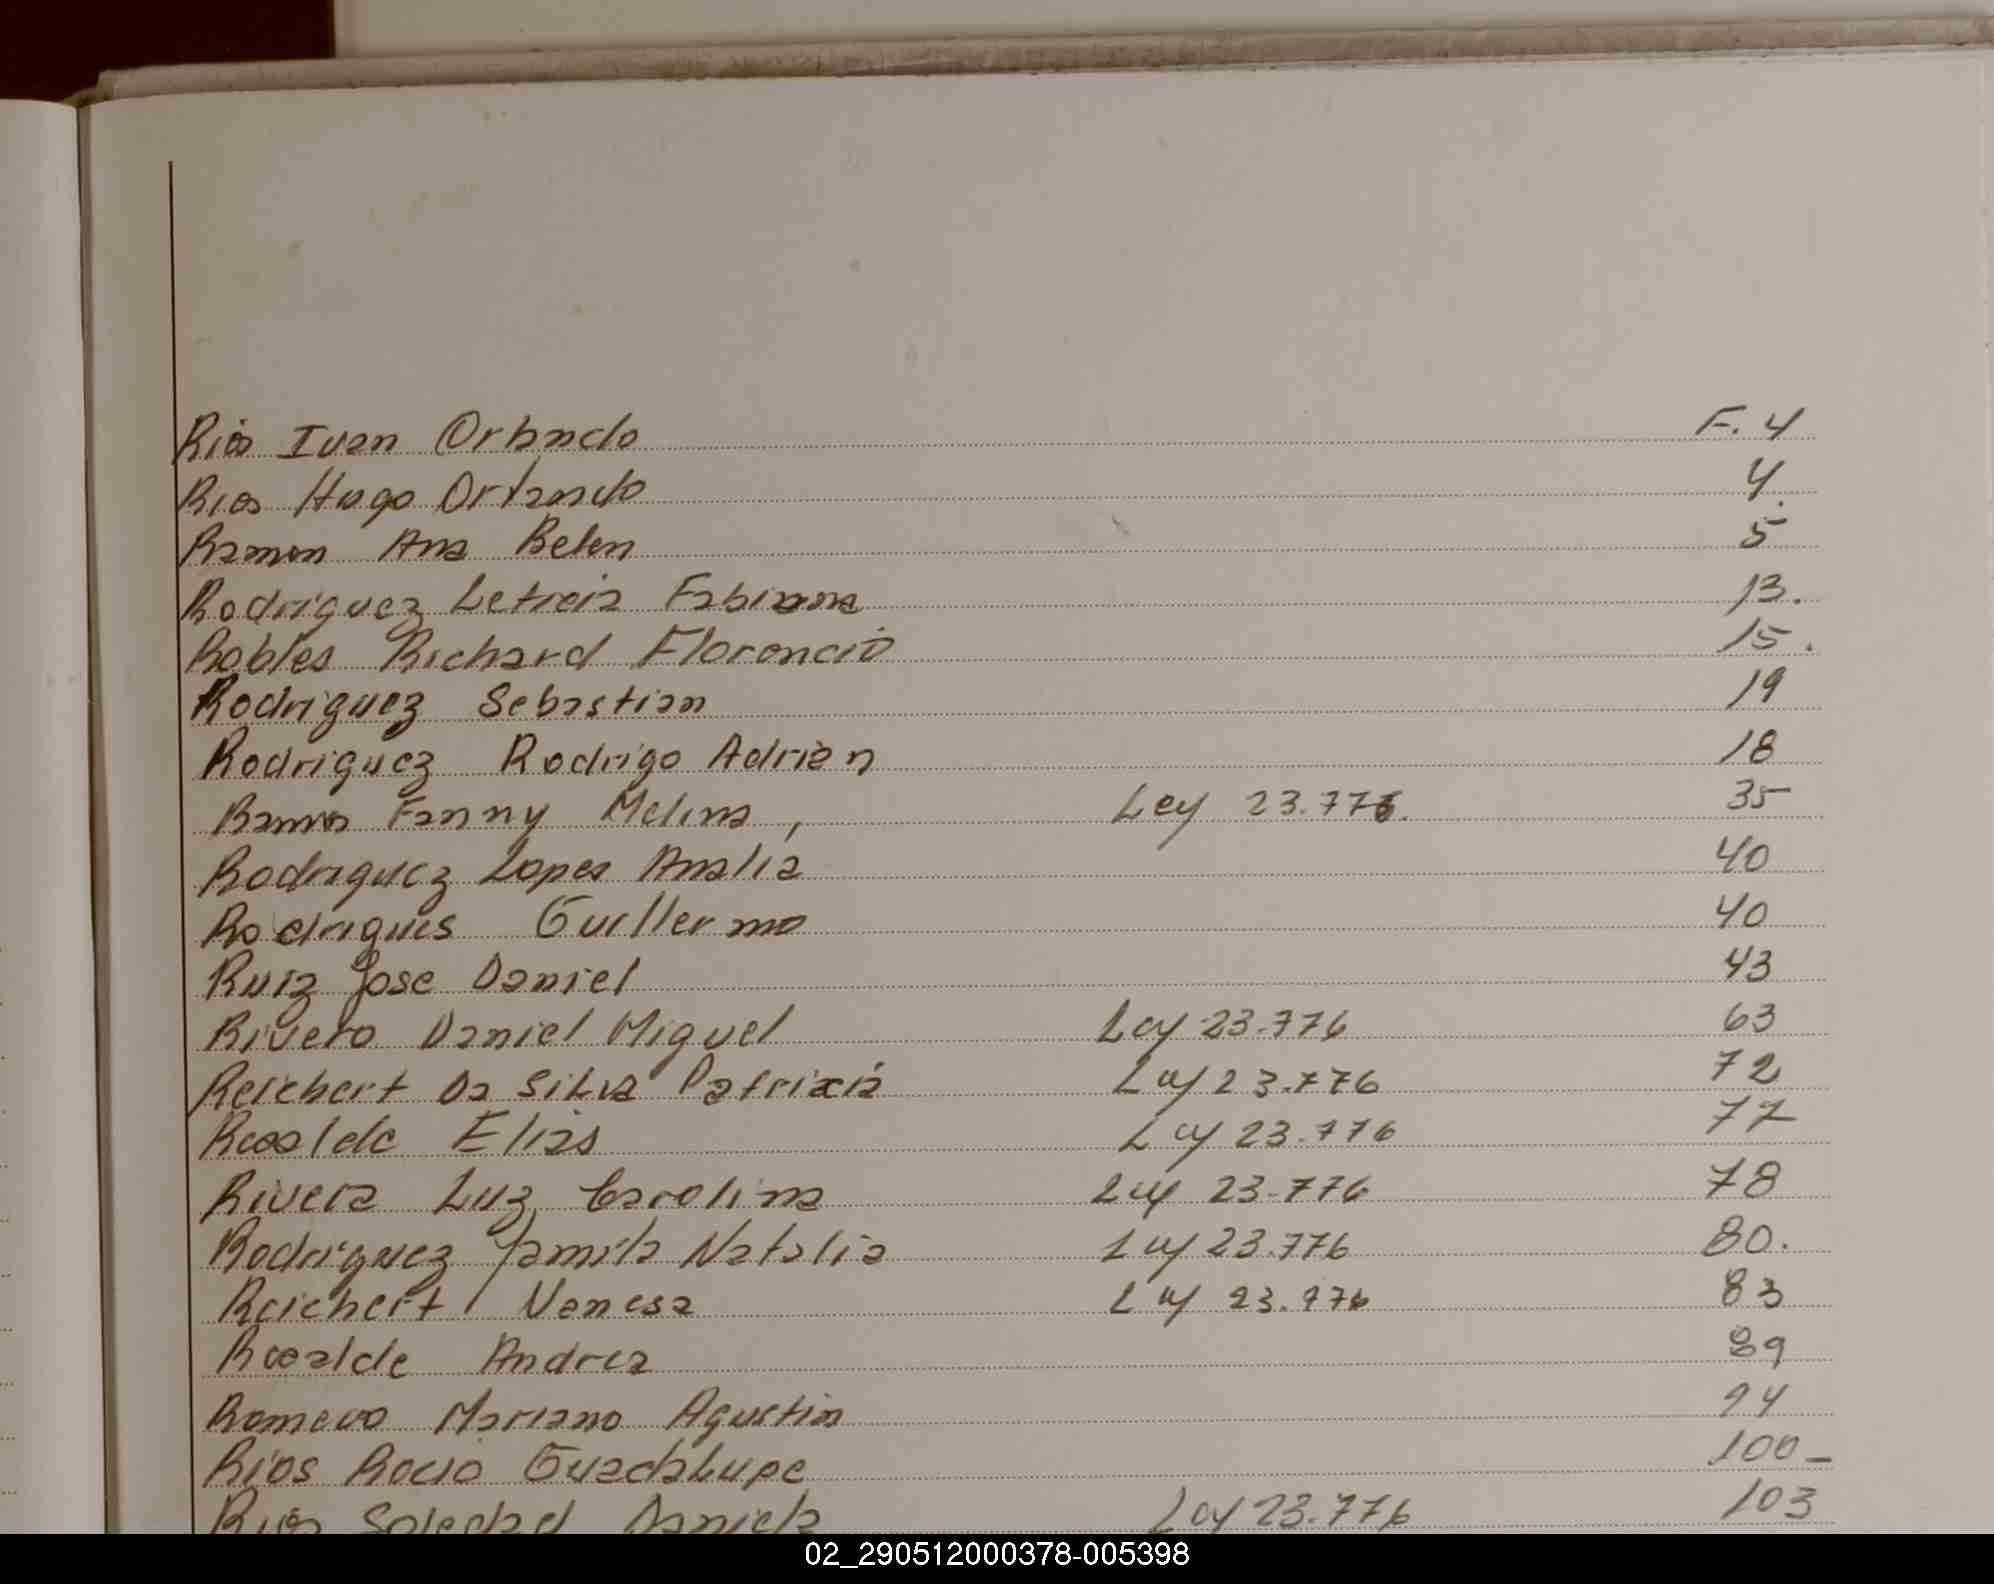 Rios Ivan Orlando F. 4
Rios Hugo Orlando 4.
Ramon Ana Belen 5
Rodriguez Leticia Fabiana 13.
Robles Richard Florencio 15.
Rodriguez Sebastian 19
Rodriguez Rodrigo Adrian 18
Ramos Fanny Melina, Ley 23.776. 35
Rodriguez Lopes Analia 40
Rodrigues Guillermo 40
Ruiz Jose Daniel 43
Rivero Daniel Miguel Ley 23.776 63
Reichert Da Silva Patrixia Ley 23.776 72
Recalde Elias Ley 23.776 77
Rivera Luz Carolina Ley 23.776 78
Rodriguez Yamila Natalia Ley 23.776 80.
Reichert Vanesa Ley 23.776 83
Recalde Andrea 89
Romero Mariano Agustin 94
Rios Rocio Guadalupe 100-
Rios Soledad Daniela Ley 23.776 103
02_290512000378-005398